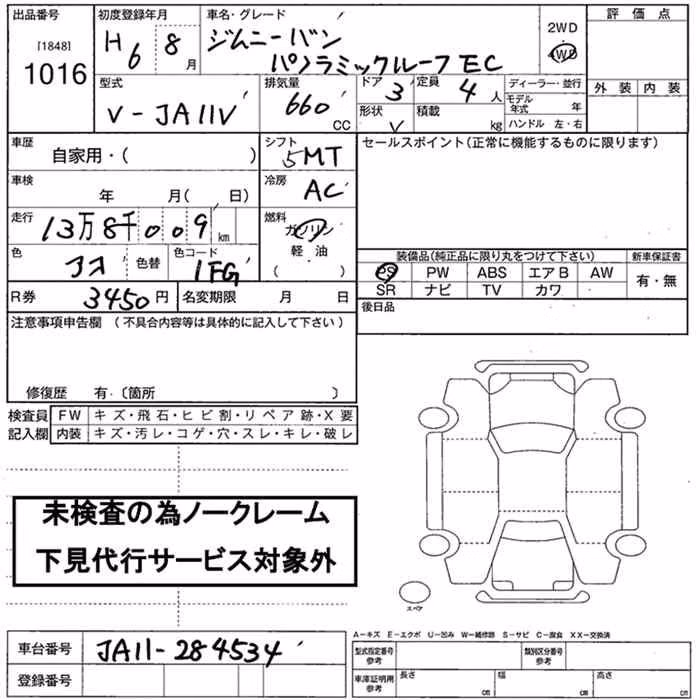 出品番号
[1848]
1016
初度登録年月
H6 8月
車名・グレード
ジムニーバン
パノラミックルーフ EC
2WD
4WD
評価点
外装 内装
型式
V-JA11V
排気量
660 CC
ドア
3
定員
4人
形状
V
積載
kg
ディーラー・並行
モデル年式 年
ハンドル 左・右
車歴
自家用・( )
シフト
5MT
セールスポイント(正常に機能するものに限ります)
車検
年 月( 日)
冷房
AC
走行
13万8千009km
燃料
ガソリン
軽・油
( )
色
色替
色コード
1FG
装備品(純正品に限り丸をつけて下さい)
新車保証書
PS PW ABS エアB AW
SR ナビ TV カワ
有・無
R券
3450円
名変期限 月 日
後日品
注意事項申告欄 (不具合内容等は具体的に記入して下さい)
修復歴 有・〔箇所 〕
検査員
記入欄
FW キズ・飛石・ヒビ割・リペア跡・X要
内装 キズ・汚レ・コゲ・穴・スレ・キレ・破レ
未検査の為ノークレーム
下見代行サービス対象外
スペア
A-キズ E-エクボ U-凹み W-補修跡 S-サビ C-腐食 XX-交換済
車台番号
JA11-284534
登録番号
型式指定番号
参考
類別区分番号
参考
車庫証明用
参考
長さ cm
幅 cm
高さ cm